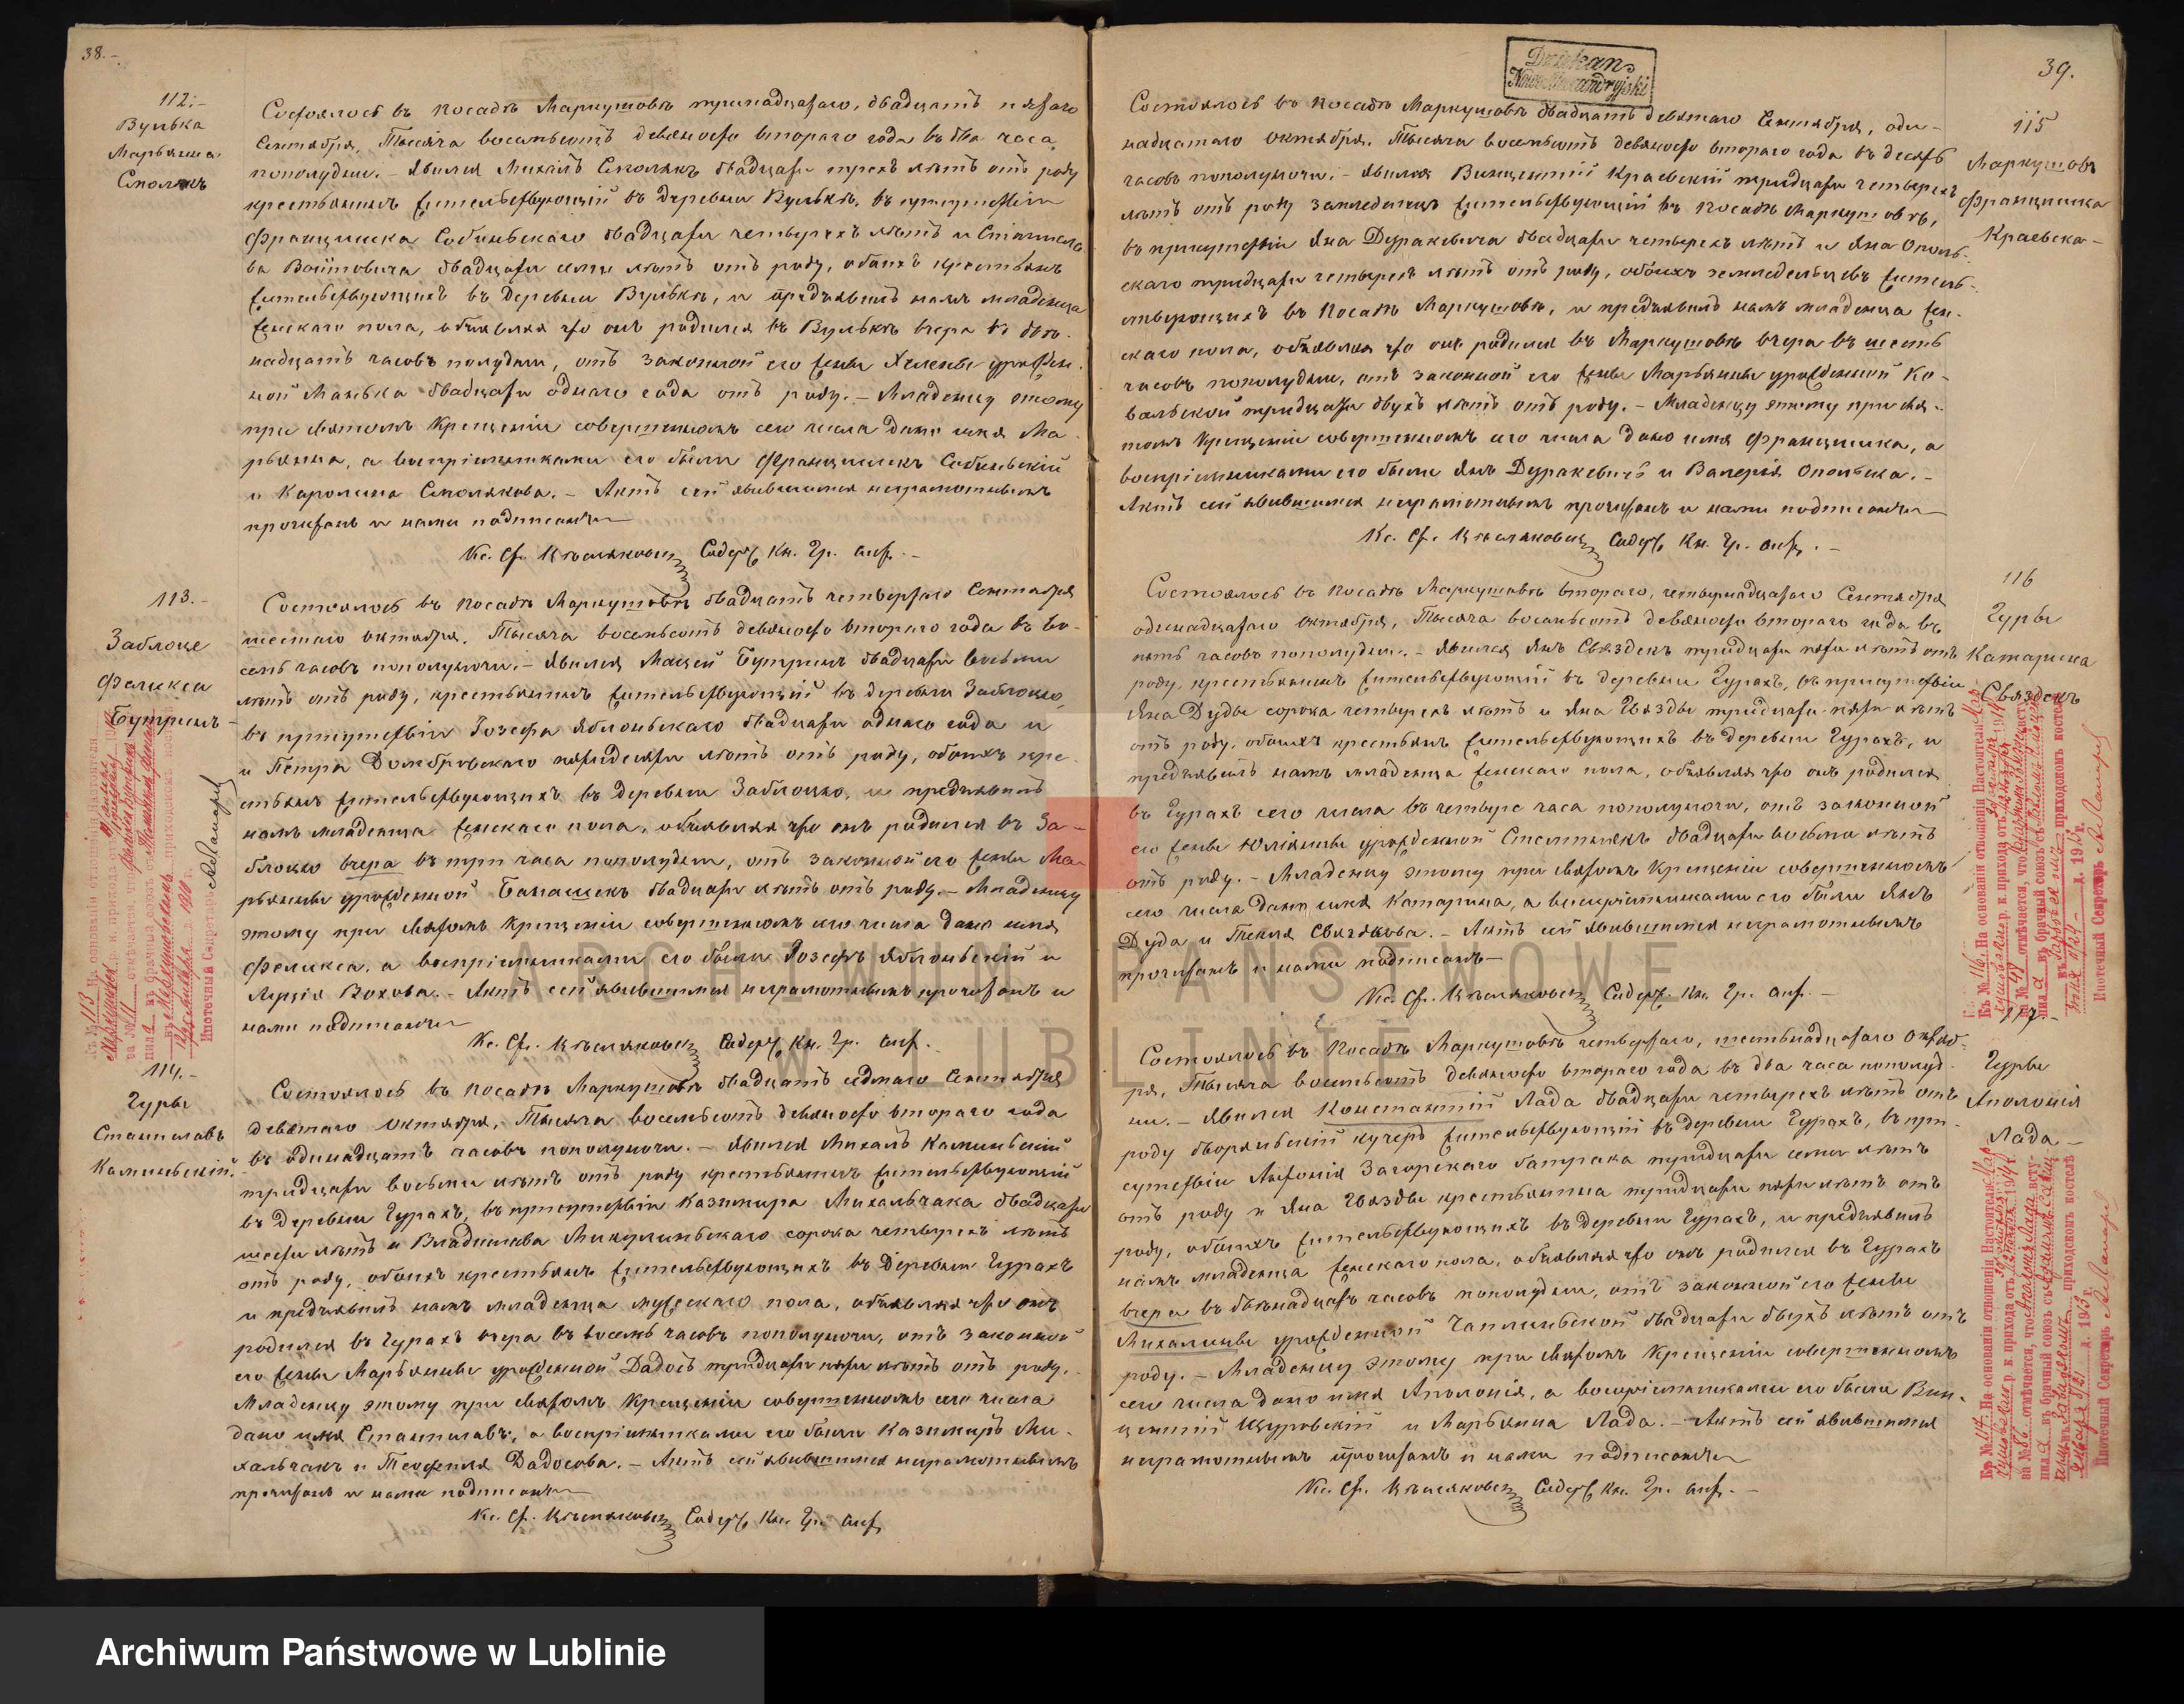 38.-
112.-
Вулька
Марьянна
Смолякъ
Состоялось въ посадѣ Маркушовѣ тринадцатаго, двадцать пятаго
Сентября, Тысяча восемьсотъ девяносто втораго года въ два часа
пополудни. - Явился Михаилъ Смолякъ двадцати трехъ лѣтъ отъ роду
крестьянинъ жительствующій въ деревни Вулькѣ, въ присутствіи
Францишка Собиньскаго двадцати четырехъ лѣтъ и Станисла
ва Войтовича двадцати семи лѣтъ отъ роду, обоихъ крестьянъ
жительствующихъ въ деревни Вулькѣ, и предъявилъ намъ младенца
женскаго пола, объявляя что онъ родился въ Вулькѣ вчера въ двѣ-
надцать часовъ полудни, отъ законной его жены Хелены урожден-
ной Манька двадцати одного года отъ роду. - Младенцу этому
при святомъ крещеніи совершенномъ сего числа дано имя Ма-
рьянна, а воспріемниками его были Францишекъ Собиньскій
и Каролина Смолякова. - Актъ сей явившимся неграмотнымъ
прочитанъ и нами подписанъ
Кс. Ст. Содерж. Кн. Гр. Сост. -
113.-
Заблоце
Феликса
Бутринъ
Состоялось въ посадѣ Маркушовѣ двадцать четвертаго Сентября
шестаго октября, Тысяча восемьсотъ девяносто втораго года въ во-
семь часовъ пополуночи. - Явился Мацей Бутринъ двадцати восьми
лѣтъ отъ роду, крестьянинъ жительствующій въ деревни Заблоцю,
въ присутствіи Іозефа Яблоньскаго двадцати одного года и
и Петра Домбровскаго пятидесяти лѣтъ отъ роду, обоихъ кре-
стьянъ жительствующихъ въ деревни Заблоцю, и предъявилъ
намъ младенца женскаго пола, объявляя что онъ родился въ За-
блоцю вчера въ три часа пополудни, отъ законной его жены Ма-
рьянны урожденной Банашекъ двадцати лѣтъ отъ роду. - Младенцу
этому при святомъ крещеніи совершенномъ сего числа дано имя
Феликса, а воспріемниками его были Іозефъ Яблоньскій и
Люція Вохова. - Актъ сей явившимся неграмотнымъ прочитанъ и
нами подписанъ
Кс. Ст. Содерж. Кн. Гр. Сост. -
114.-
Гуры
Станиславъ
Каминьскій
Состоялось въ посадѣ Маркушовѣ двадцать седмаго Сентября
девятаго Октября, Тысяча восемьсотъ девяносто втораго года
въ одинадцать часовъ пополуночи. - Явился Михалъ Каминьскій
тридцати восьми лѣтъ отъ роду крестьянинъ жительствующій
въ деревни Гурахъ, въ присутствіи Казимира Михальчака двадцати
шести лѣтъ и Владислава Микулиньскаго сорока четырехъ лѣтъ
отъ роду, обоихъ крестьянъ жительствующихъ въ деревни Гурахъ
и предъявилъ намъ младенца мужескаго пола, объявляя что онъ
родился въ Гурахъ вчера въ восемь часовъ пополуночи, отъ законной
его жены Марьянны урожденной Дадосъ тридцати пяти лѣтъ отъ роду.
Младенцу этому при святомъ крещеніи совершенномъ сего числа
дано имя Станиславъ, а воспріемниками его были Казимиръ Ми-
хальчакъ и Теофиля Дадосова. - Актъ сей явившимся неграмотнымъ
прочитанъ и нами подписанъ
Кс. Ст. Содерж. Кн. Гр. Сост.
Dziekan
NowoAleksandryjski
39.
115
Маркушовъ
Францишка
Краевска -
Состоялось въ посадѣ Маркушовѣ двадцать девятаго Сентября, оди-
надцатаго октября, Тысяча восемьсотъ девяносто втораго года въ десять
часовъ пополуночи. - Явился Винцентій Краевскій тридцати четырехъ
лѣтъ отъ роду земледелецъ жительствующій въ посадѣ Маркушовѣ,
въ присутствіи Яна Дуракевича двадцати четырехъ лѣтъ и Яна Ополь-
скаго тридцати четырехъ лѣтъ отъ роду, обоихъ земледельцевъ житель-
ствующихъ въ посадѣ Маркушовѣ, и предъявилъ намъ младенца жен-
скаго пола, объявляя что онъ родился въ Маркушовѣ вчера въ шесть
часовъ пополудни, отъ законной его жены Марьянны урожденной Ко-
вальской тридцати двухъ лѣтъ отъ роду. - Младенцу этому при свя-
томъ крещеніи совершенномъ сего числа дано имя Францишка, а
воспріемниками его были Янъ Дуракевичъ и Валерія Опольска. -
Актъ сей явившимся неграмотнымъ прочитанъ и нами подписанъ
Кс. Ст. Содерж. Кн. Гр. Сост. -
116
Гуры
Катарина
Связдекъ
Состоялось въ посадѣ Маркушовѣ втораго, четырнадцатаго Сентября
одинадцатаго октября, Тысяча восемьсотъ девяносто втораго года въ
пять часовъ пополудни. - Явился Янъ Связдекъ тридцати пяти лѣтъ отъ
роду, крестьянинъ жительствующій въ деревни Гурахъ, въ присутствіи
Яна Дуды сорока четырехъ лѣтъ и Яна Гвязды тридцати пяти лѣтъ
отъ роду, обоихъ крестьянъ жительствующихъ въ деревни Гурахъ, и
предъявилъ намъ младенца женскаго пола, объявляя что онъ родился
въ Гурахъ сего числа въ четыре часа пополуночи, отъ законной
его жены Юліянны урожденной двадцати восьми лѣтъ
отъ роду. - Младенцу этому при святомъ крещеніи совершенномъ
сего числа дано имя Катарина, а воспріемниками его были Янъ
Дуда и Текля Связдкова. - Актъ сей явившимся неграмотнымъ
прочитанъ и нами подписанъ
Кс. Ст. Содерж. Кн. Гр. Сост. -
117.-
Гуры
Аполонія
Лада -
Состоялось въ посадѣ Маркушовѣ четвертаго, шестьнадцатаго Октяб-
ря, Тысяча восемьсотъ девяносто втораго года въ два часа пополуд-
ни. - Явился Константій Лада двадцати четырехъ лѣтъ отъ
роду дворяньскій кучеръ жительствующій въ деревни Гурахъ, въ при-
сутствіи Антонія Загорскаго батрака тридцати семи лѣтъ
отъ роду и Яна Гвязды крестьянина тридцати пяти лѣтъ отъ
роду, обоихъ жительствующихъ въ деревни Гурахъ, и предъявилъ
намъ младенца женскаго пола, объявляя что онъ родился въ Гурахъ
вчера въ двѣнадцать часовъ пополудни, отъ законной его жены
Михалины урожденной Чаплиньской двадцати двухъ лѣтъ отъ
роду. - Младенцу этому при святомъ крещеніи совершенномъ
сего числа дано имя Аполонія, а воспріемниками его были Вин-
центій Щуровскій и Марьянна Лада. - Актъ сей явившимся
неграмотнымъ прочитанъ и нами подписанъ
Кс. Ст. Содерж. Кн. Гр. Сост. -
ARCHIWUM PAŃSTWOWE
W LUBLINIE
Archiwum Państwowe w Lublinie